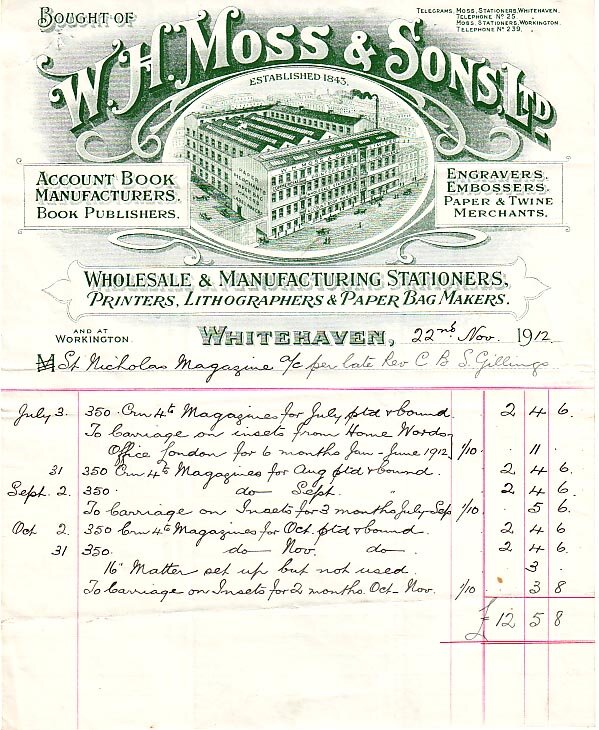 BOUGHT OF
TELEGRAMS, MOSS, STATIONERS, WHITEHAVEN.
TELEPHONE No 25.
MOSS, STATIONERS, WORKINGTON.
TELEPHONE No 239.
W.H. MOSS & SONS, LTD
ESTABLISHED 1843.
ACCOUNT BOOK
MANUFACTURERS.
BOOK PUBLISHERS.
ENGRAVERS.
EMBOSSERS.
PAPER & TWINE
MERCHANTS.
WHOLESALE & MANUFACTURING STATIONERS,
PRINTERS, LITHOGRAPHERS & PAPER BAG MAKERS.
AND AT
WORKINGTON
WHITEHAVEN, 22nd Nov. 1912
M St Nicholas Magazine a/c per late Rev C B S Gillings
July 3. 350 Crn 4to Magazines for July ptd & bound. 2 4 6.
To Carriage on insets from Home Words
Office London for 6 months Jan - June 1912 1/10 . 11
31 350 Crn 4to Magazines for Aug ptd & bound. 2 4 6
Sept. 2. 350. do Sept. " 2 4 6.
To Carriage on Insets for 3 months July-Sep 1/10 . 5 6
Oct 2. 350 Crn 4to Magazines for Oct. ptd & bound. 2 4 6
31 350. do Nov. do 2 4 6.
16 Matter set up but not used. . 3 .
To Carriage on Insets for 2 months. Oct-Nov. 1/10 . 3 8
£ 12 5 8